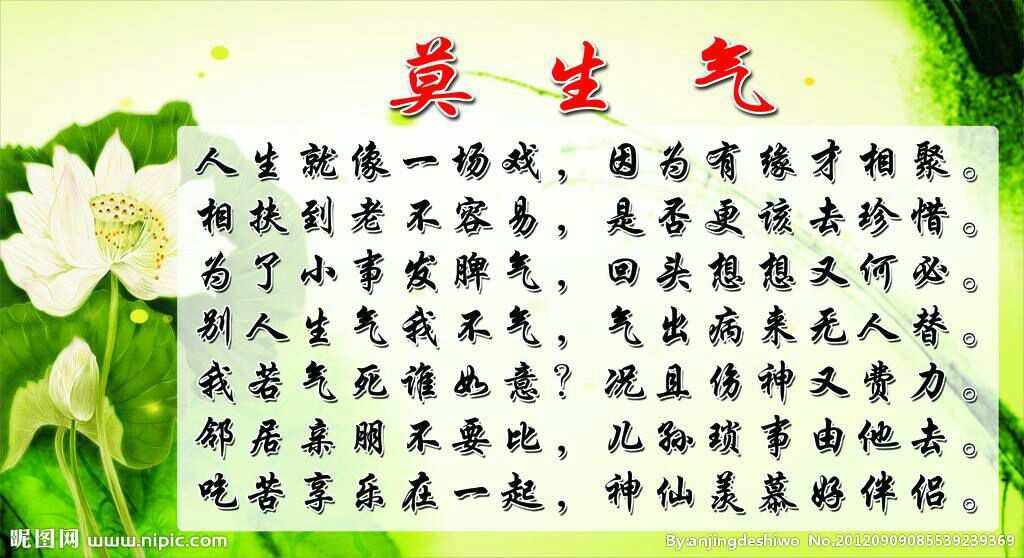 莫生气
人生就像一场戏，因为有缘才相聚。
相扶到老不容易，是否更该去珍惜。
为了小事发脾气，回头想想又何必。
别人生气我不气，气出病来无人替。
我若气死谁如意？况且伤神又费力。
邻居亲朋不要比，儿孙琐事由他去。
吃苦享乐在一起，神仙羡慕好伴侣。
昵图网 www.nipic.com
By:anjingdeshiwo No.20120909085539239369